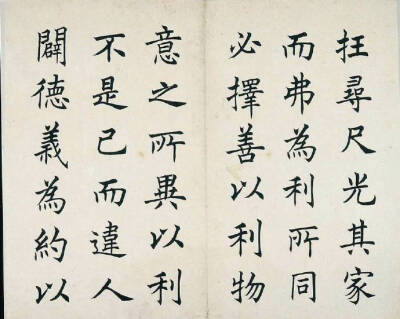 枉尋尺光其家
而弗為利所同
必擇善以利物
意之所異以利
不是己而違人
闢德義為約以